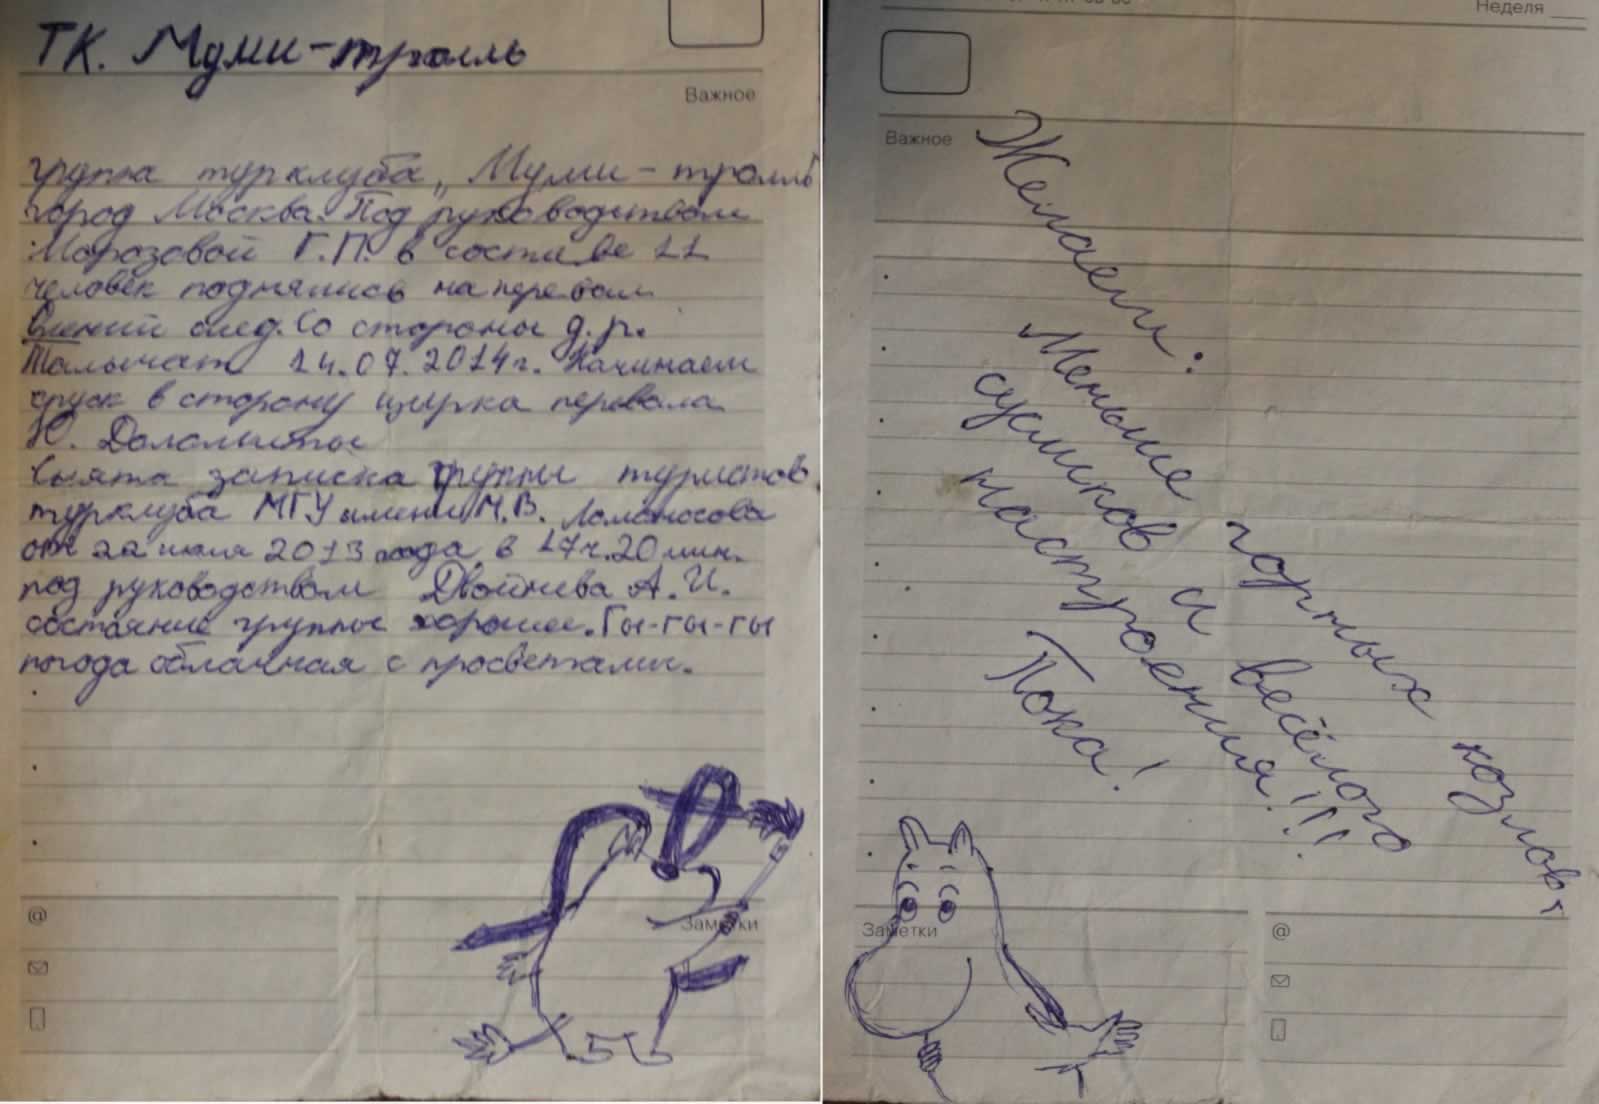 ТК. Муми-тролль
Важное
группа турклуба „Муми-тролль
город Москва. Под руководством
Морозовой Г.П. в составе 11
человек поднялись на перевал
след. Со стороны д.р.
Талычат 14.07.2014г. Начинаем
спуск в сторону цирка перевала
Ю. Доломиты
Снята записка группы туристов
турклуба МГУ имени М.В. Ломоносова
от 22 июля 2013 года в 17ч.20мин.
под руководством А.И.
состояние группы хорошее. Гы-гы-гы
погода облачная с просветами.
@
Заметки
Неделя
Важное
Желаем:
Меньше горных козлов,
сусликов и весёлого
настроения!!!
Пока!
Заметки
@